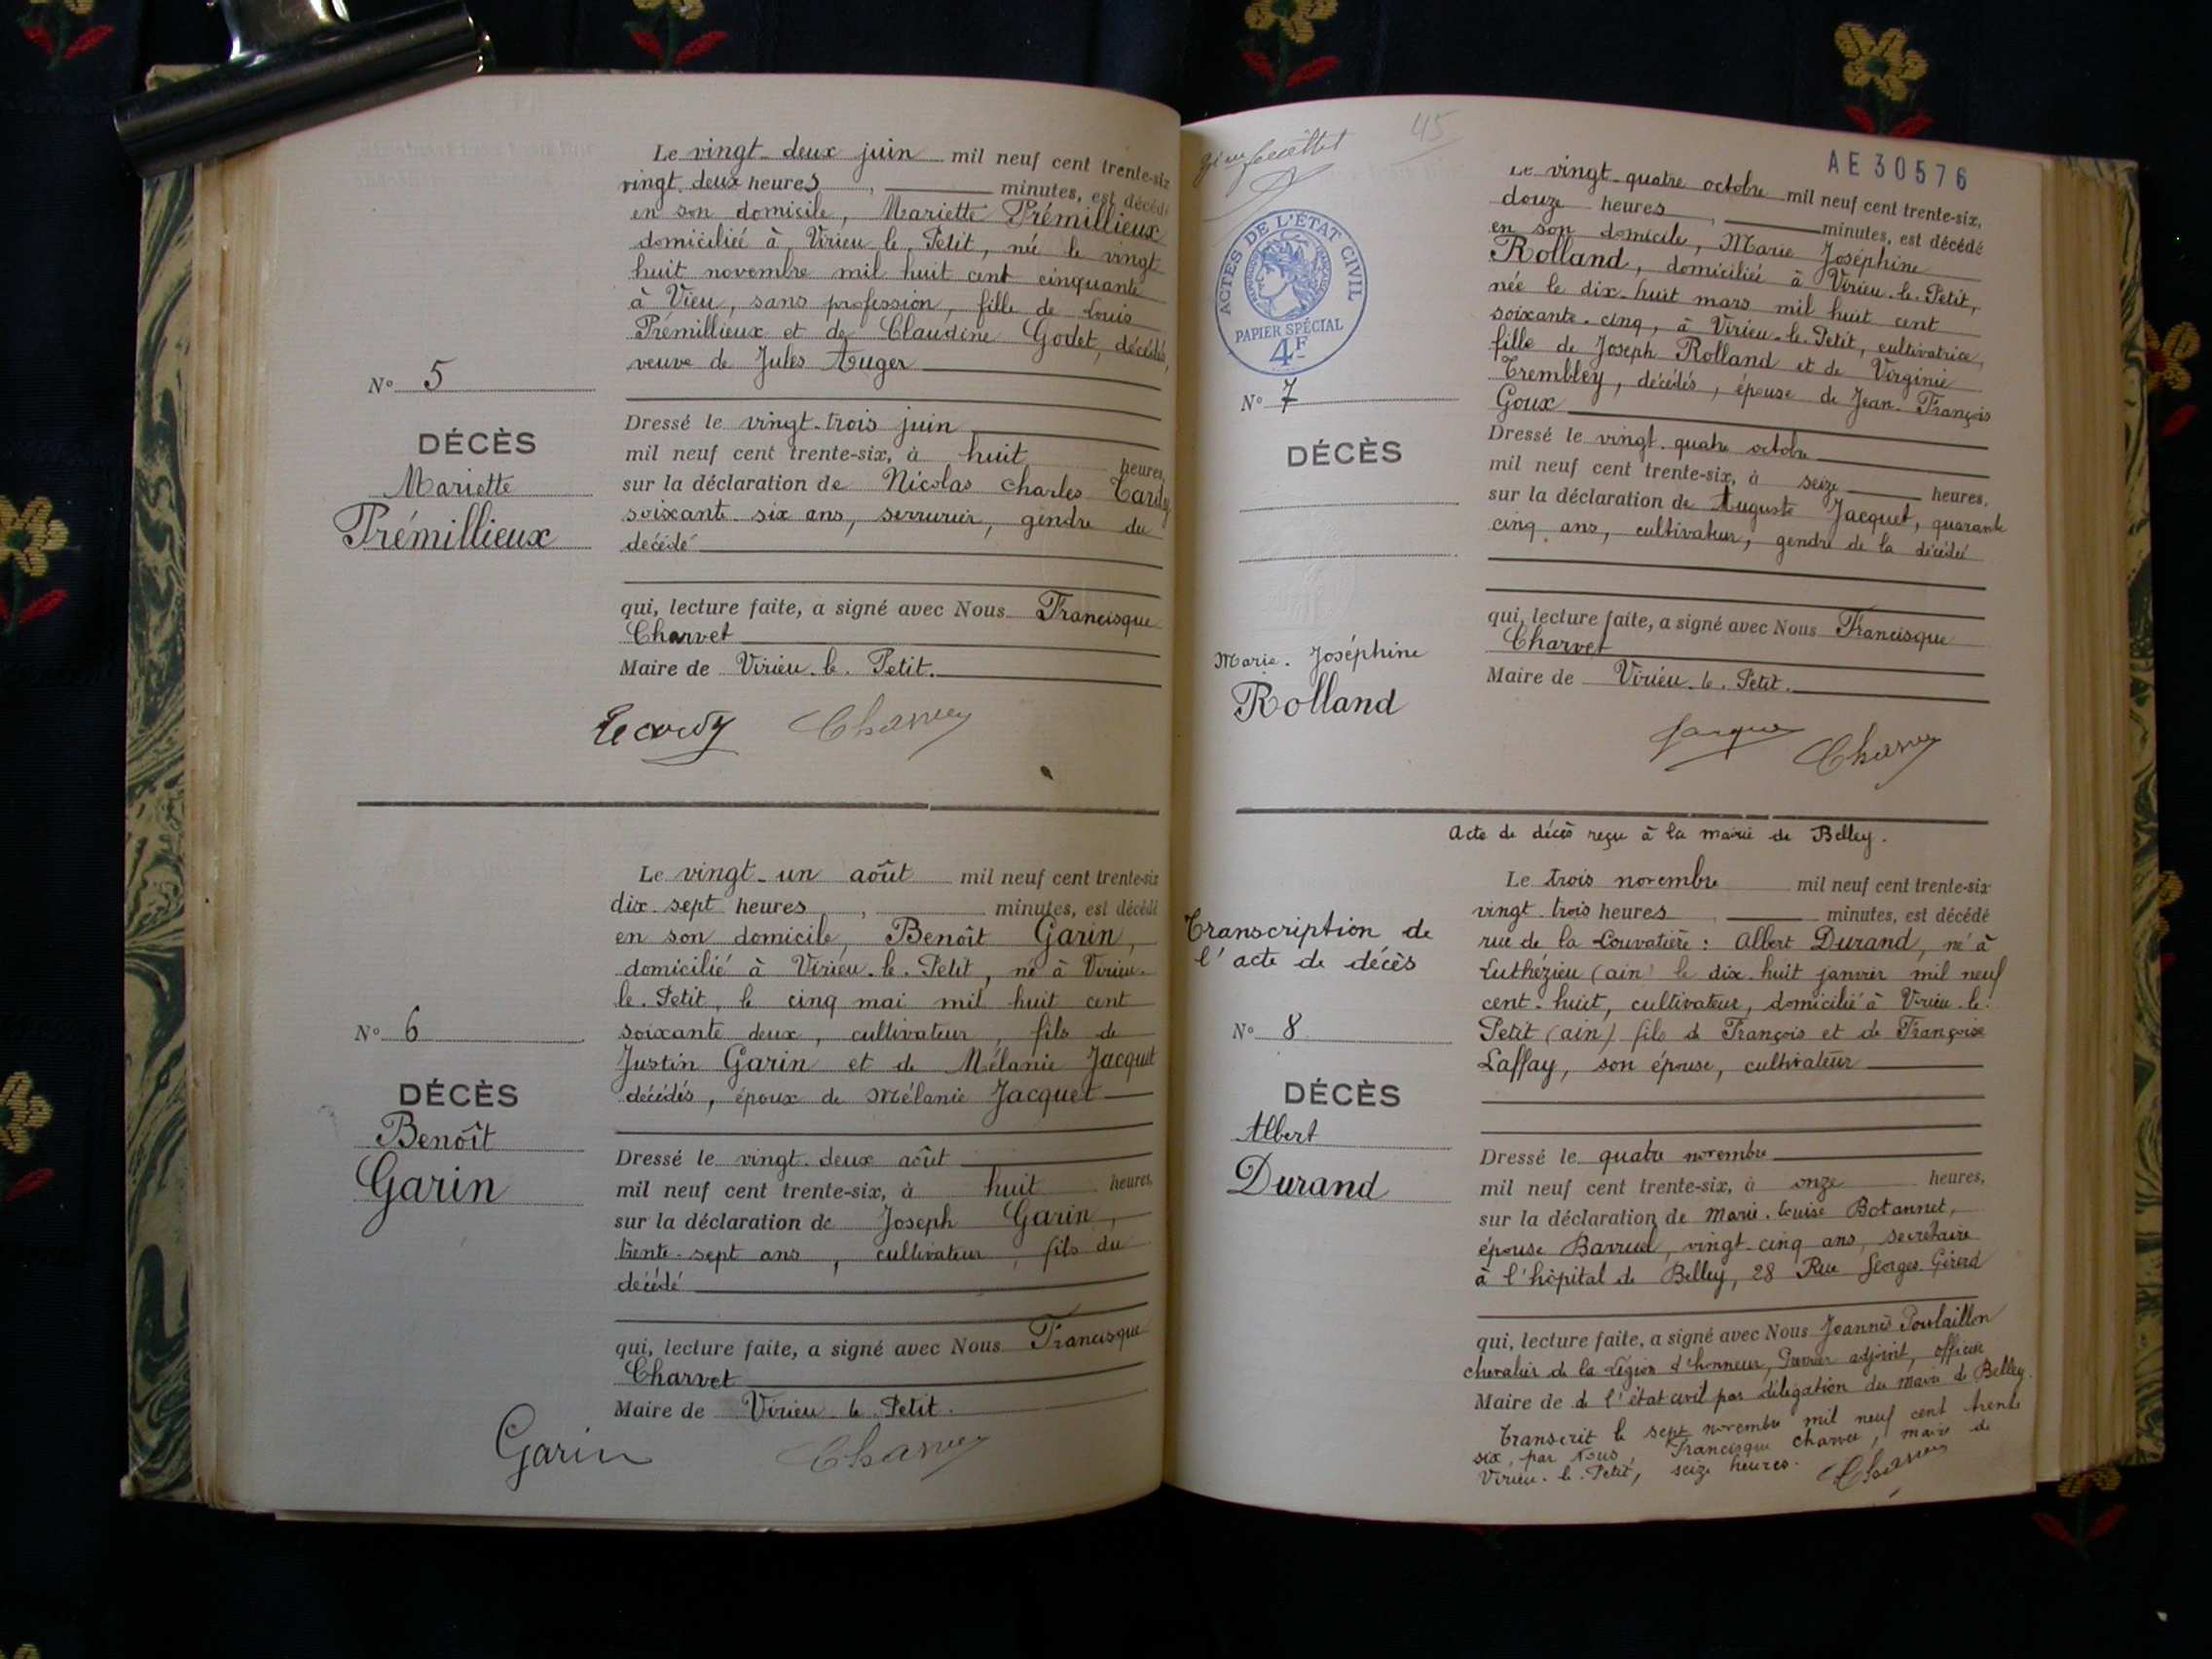 Le vingt-deux juin mil neuf cent trente-six
vingt-deux heures, minutes, est décédé
en son domicile, Mariette Prémillieux
domiciliée à Virieu-le-Petit, née le vingt
huit novembre mil huit cent cinquante
à Vieu, sans profession, fille de Louis
Prémillieux et de Claudine Godet, décédés,
veuve de Jules Auger
N° 5
DÉCÈS
Mariette
Prémillieux
Dressé le vingt-trois juin
mil neuf cent trente-six, à huit heures,
sur la déclaration de Nicolas Charles Tardy
soixante-six ans, serrurier, gendre du
décédé
qui, lecture faite, a signé avec Nous Francisque
Charvet
Maire de Virieu-le-Petit.
Charvet
Le vingt-un août mil neuf cent trente-six
dix-sept heures, minutes, est décédé
en son domicile, Benoît Garin,
domicilié à Virieu-le-Petit, né à Virieu-
le-Petit, le cinq mai mil huit cent
soixante deux, cultivateur, fils de
Justin Garin et de Mélanie Jacquet
décédés, époux de Mélanie Jacquet
N° 6
DÉCÈS
Benoît
Garin
Dressé le vingt-deux août
mil neuf cent trente-six, à huit heures,
sur la déclaration de Joseph Garin,
trente-sept ans, cultivateur, fils du
décédé
qui, lecture faite, a signé avec Nous Francisque
Charvet
Maire de Virieu-le-Petit.
Garin Charvet
45
AE 30576
ACTES DE L'ÉTAT CIVIL
PAPIER SPÉCIAL
4F
Le vingt-quatre octobre mil neuf cent trente-six,
douze heures, minutes, est décédé
en son domicile, Marie Joséphine
Rolland, domiciliée à Virieu-le-Petit,
née le dix-huit mars mil huit cent
soixante-cinq, à Virieu-le-Petit, cultivatrice,
fille de Joseph Rolland et de Virginie
Trembley, décédés, épouse de Jean-François
Goux
N° 7
DÉCÈS
Marie-Joséphine
Rolland
Dressé le vingt-quatre octobre
mil neuf cent trente-six, à seize heures,
sur la déclaration de Auguste Jacquet, quarante
cinq ans, cultivateur, gendre de la décédée
qui, lecture faite, a signé avec Nous Francisque
Charvet
Maire de Virieu-le-Petit.
Jacquet Charvet
Acte de décès reçu à la mairie de Belley.
Transcription de
l'acte de décès
N° 8
DÉCÈS
Albert
Durand
Le trois novembre mil neuf cent trente-six
vingt-trois heures, minutes, est décédé
rue de la Louvatière : Albert Durand, né à
Luthézieu (ain) le dix-huit janvier mil neuf
cent-huit, cultivateur, domicilié à Virieu-le-
Petit (ain) fils de François et de Françoise
Laffay, son épouse, cultivateur
Dressé le quatre novembre
mil neuf cent trente-six, à onze heures,
sur la déclaration de Marie-Louise Botannet,
épouse Barruel, vingt-cinq ans, secrétaire
à l'hôpital de Belley, 28 Rue Georges Girerd
qui, lecture faite, a signé avec Nous Joannès Poulaillon
chevalier de la Légion d'honneur, Premier adjoint, officier
Maire de de l'état civil par délégation du Maire de Belley.
Transcrit le sept novembre mil neuf cent trente
six, par Nous, Francisque Charvet, maire de
Virieu-le-Petit, seize heures.
Charvet